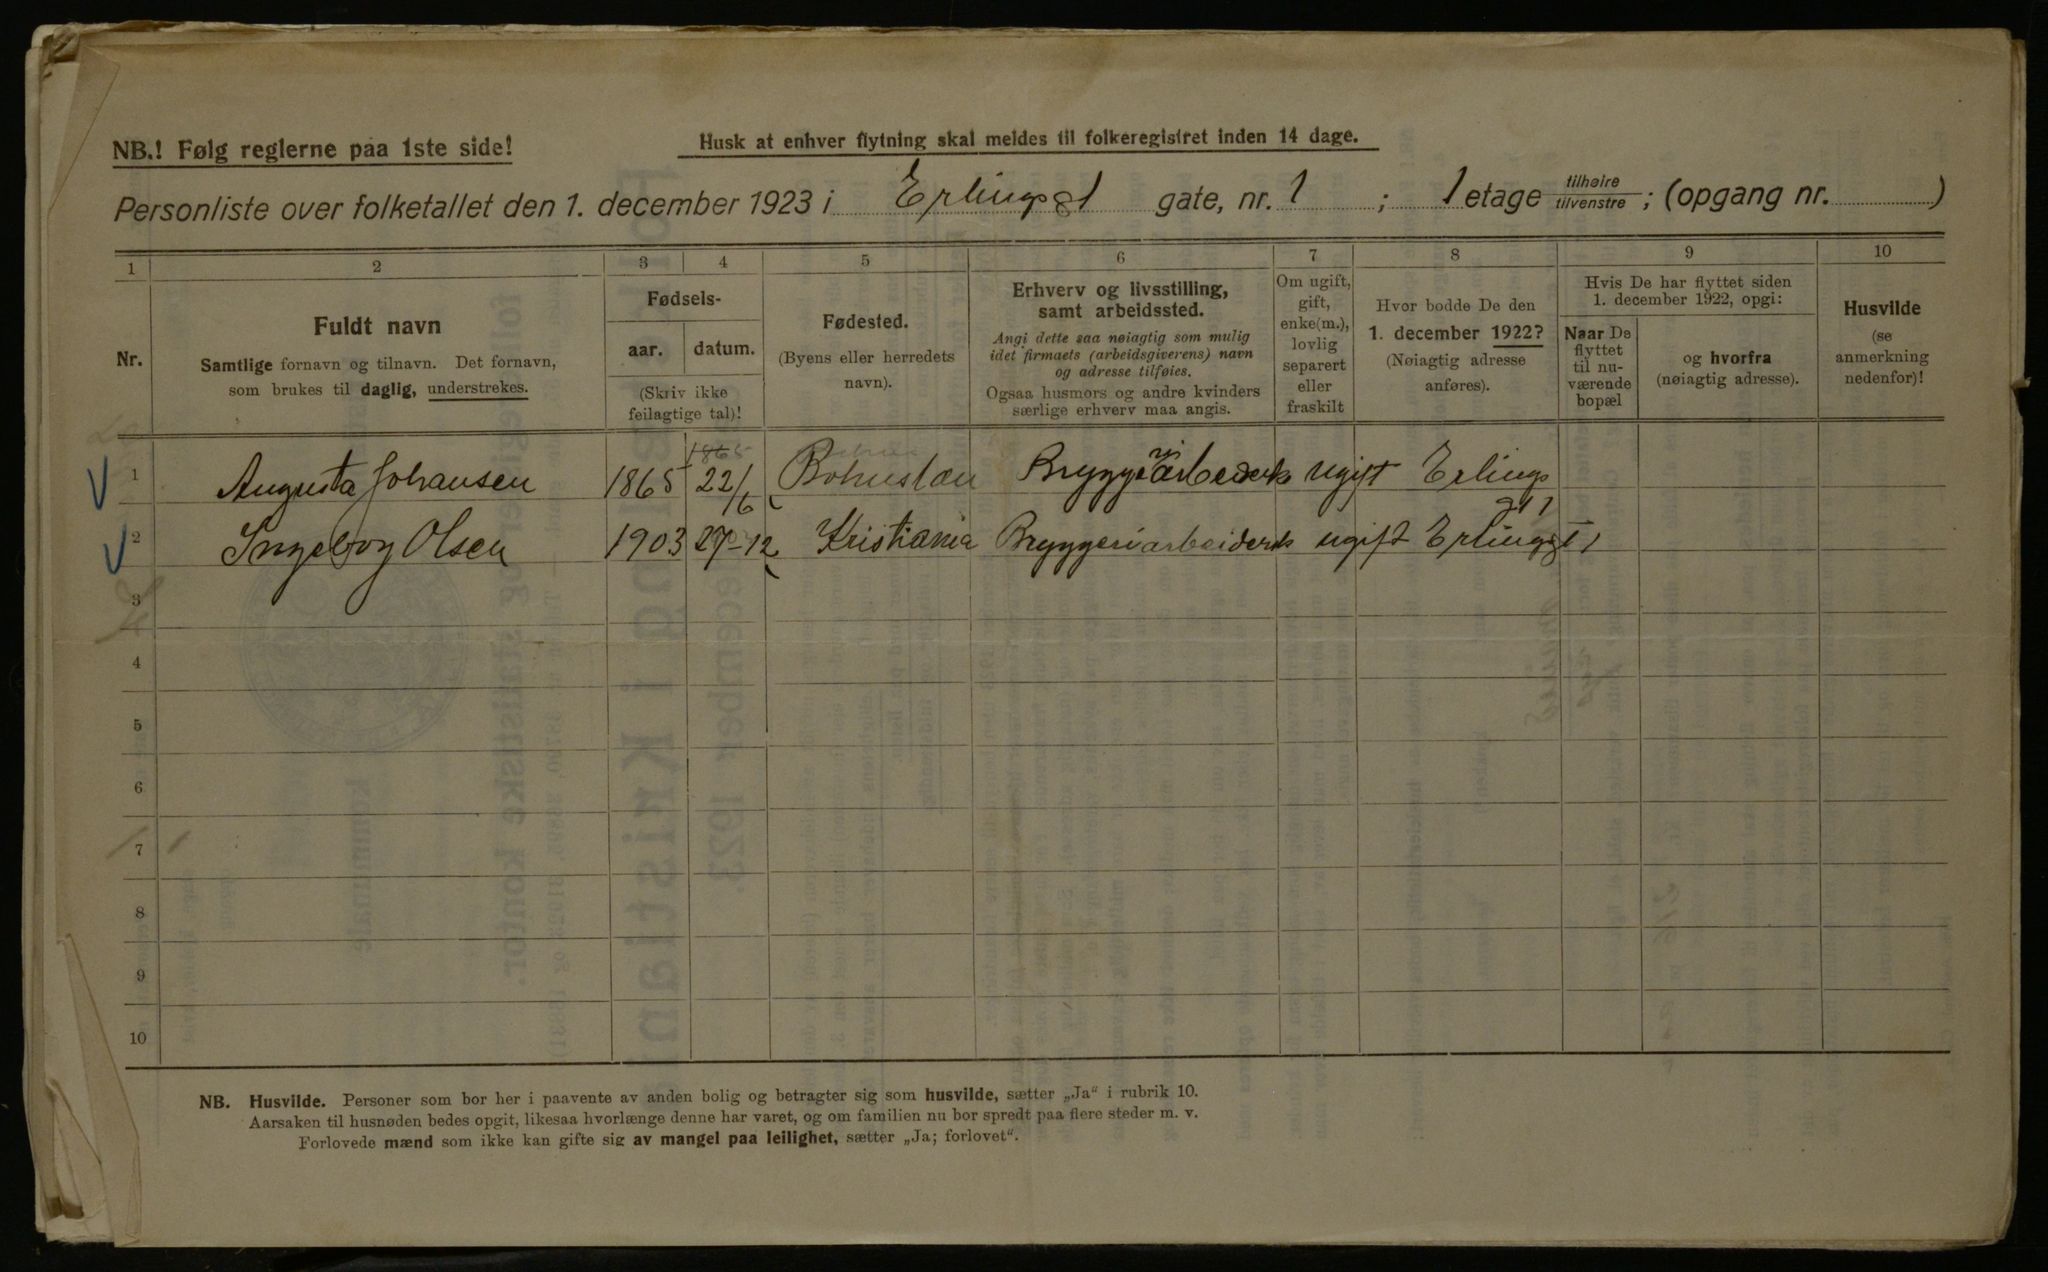 NB.! Følg reglerne paa 1ste side!
Husk at enhver flytning skal meldes til folkeregistret inden 14 dage.
Personliste over folketallet den 1. december 1923 i Erlingsgt gate, nr. 1 ; 1 etage tilhøire tilvenstre ; (opgang nr. )
1 2 3 4 5 6 7 8 9 10
Nr.
Fuldt navn
Samtlige fornavn og tilnavn. Det fornavn,
som brukes til daglig, understrekes.
Fødsels-
aar. datum.
(Skriv ikke
feilagtige tal)!
Fødested.
(Byens eller herredets
navn).
Erhverv og livsstilling,
samt arbeidssted.
Angi dette saa nøiagtig som mulig
idet firmaets (arbeidsgiverens) navn
og adresse tilføies.
Ogsaa husmors og andre kvinders
særlige erhverv maa angis.
Om ugift,
gift,
enke(m.),
lovlig
separert
eller
fraskilt
Hvor bodde De den
1. december 1922?
(Nøiagtig adresse
anføres).
Hvis De har flyttet siden
1. december 1922, opgi:
Naar De
flyttet
til nu-
værende
bopæl
og hvorfra
(nøiagtig adresse).
Husvilde
(se
anmerkning
nedenfor)!
1865
1 Augusta Johansen 1865 22/6 Bohuslæn Bryggeriarbeiderske ugift Erlings
gt 1
2 Ingeborg Olsen 1903 27-12 Kristiania Bryggeriarbeidersk ugift Erlingsgt 1
3
4
5
6
7
8
9
10
NB. Husvilde. Personer som bor her i paavente av anden bolig og betragter sig som husvilde, sætter „Ja“ i rubrik 10.
Aarsaken til husnøden bedes opgit, likesaa hvorlænge denne har varet, og om familien nu bor spredt paa flere steder m. v.
Forlovede mænd som ikke kan gifte sig av mangel paa leilighet, sætter „Ja; forlovet“.